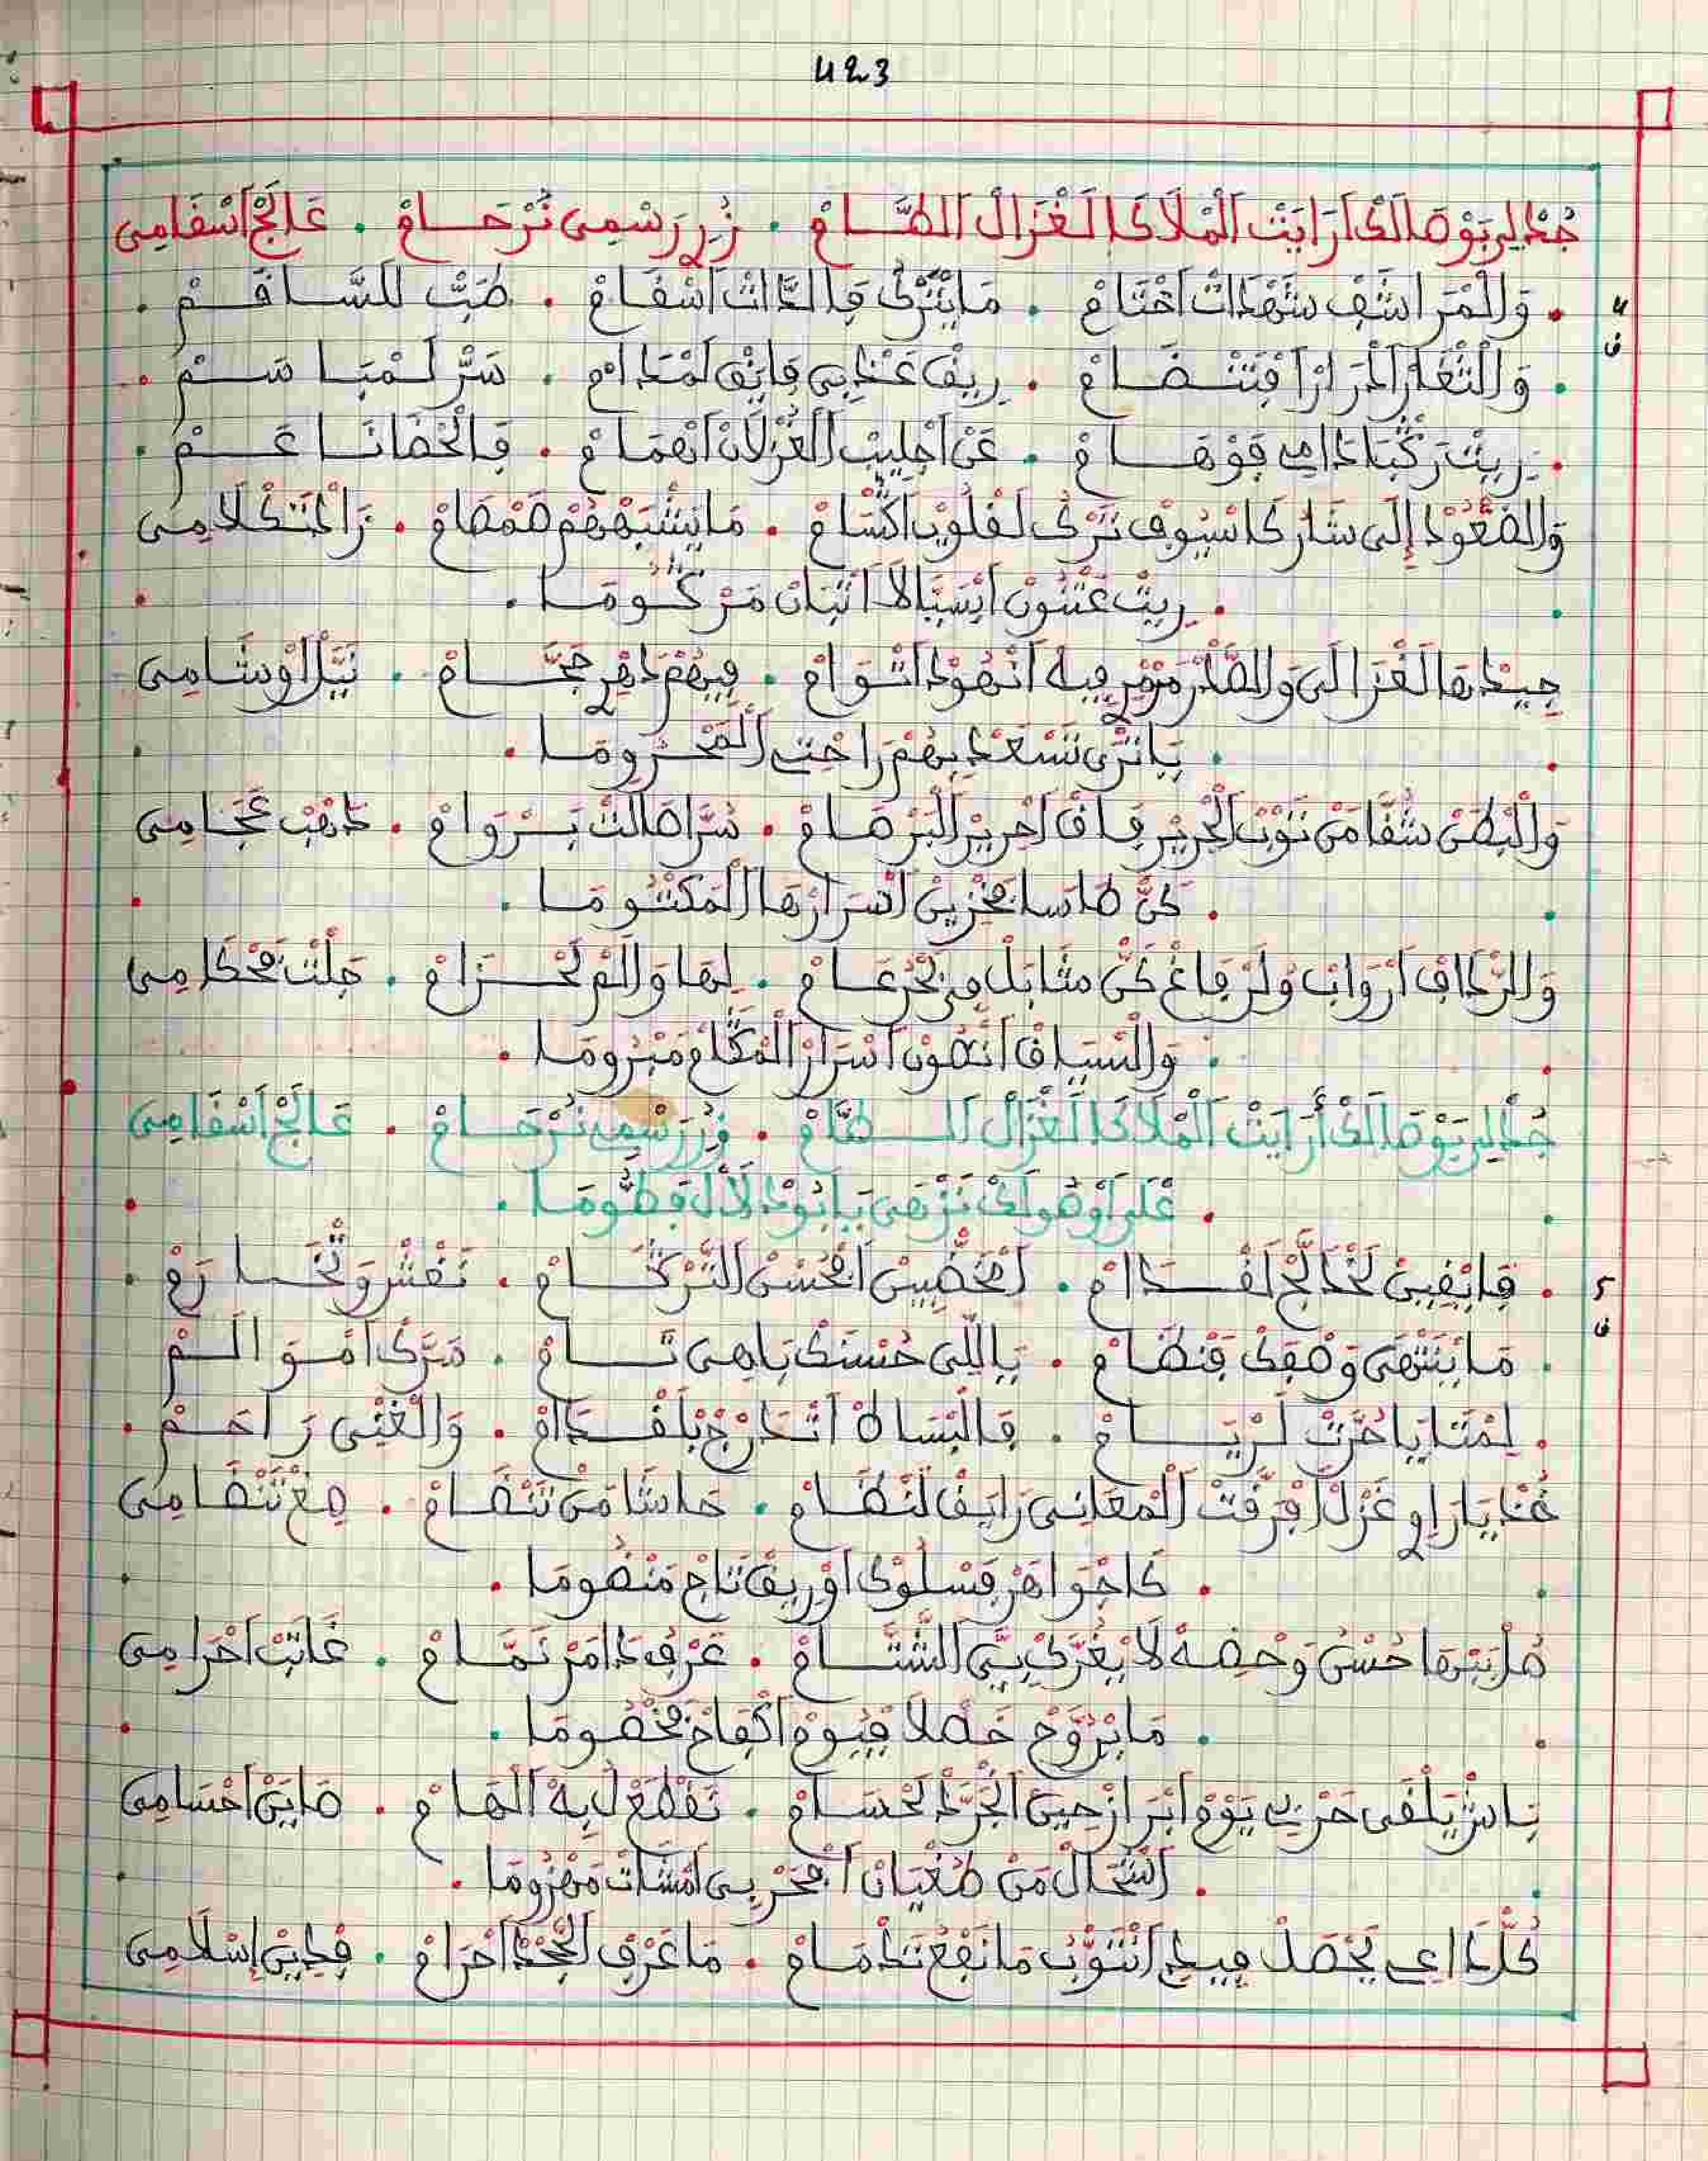 423
جُدْ لِي بَوْصَالَكْ آرَايَتْ الْمْلَاكَا لَغْزَالْ الطَّامْ . زُرْ رَسْمِي تَرْحَامْ . عَالَجْ اَسْقَامِي
4 وَالْمْرَاشَفْ شَهْدَاتْ اَخْتَامْ . مَا يْتَرْكْ فَالدَّاتْ اَسْقَامْ . طَبّْ للسَّاقَمْ
ف وَالثّْغَرْ . رِيقْ عَذْبِي فَايَقْ لَمْدَامْ . سَرّْ لَمْبَاسَمْ
رِيتْ رَكْبَا دَامِي فَوْهَامْ . عَنْ اَجْلِيبْ الغَزْلَانْ اَنْهَمَامْ . فَالْخْصَانَا عَمْ
وَالصّْعُودْ إِلَى شَارْ كَاسْيُوفْ تَرْكْ لَقْلُوبْ اَكْسَامْ . مَا يْشَبَهْهُمْ صَمْصَامْ . زَادْتْ كْلَامِي
رِيتْ عَثْنُونْ اَيْسَبَالَا اَتْبَانْ مَرْكُومَا
جِيدْهَا لَغْزَالِي وَالصّْدَرْ مَرْمَرْ فِيهْ اَنْهُودْ اَتْوَامْ . فِيهُمْ دَاهَرْ حَجَّامْ . نَيَّلْ اَوْشَامِي
يَا تْرَى نَسْعَدْ بِهُمْ رَاحْتِي الْمَحْرُومَا
وَالْبْطَنْ شَقَّا مَنْ تَوْبْ الْحْرِيرْ فَاقْ اَحْرِيرْ الْبَرْصَامْ . سُرَّا طَالْتْ بَرْوَامْ . دَهْبْ عْجَامِي
كَنّْ طَاسَا بَخْزِينْ اَسْرَارْهَا الْمَكْتُومَا
وَالرّْدَافْ اَرْوَابْ وَلَرْفَاغْ كَنّْ مْثَابَلْ مَنْ تَخْرْعَامْ . لِهَا وَالَمْ لَحْزَامْ . جَلْتْ مَحْكَامِي
وَالسَّاقْ اَنْقُونْ اَسْرَارْ الْمْكَامْ مَبْرُومَا
جُدْ لِي بَوْصَالَكْ أَرَايَتْ الْمْلَاكَا لَغْزَالْ الطَّامْ . زُرْ رَسْمِي تَرْحَامْ . عَالَجْ اَسْقَامِي
عْلَى اَوْصُولَكْ نَزْهَى يَا بُودْلَالْ فَطُّومَا
5 فَايْقِينْ لَخْدَالَجْ لَقْدَامْ . لَمْخَضّْبِينْ اَبْحُسْنْ التَّرْكَامْ . نَقْشْ وَتْخَارَمْ
ف مَا يَنْتْهَى وَصْفَكْ فَنْضَامْ . يَا اللِّي حُسْنَكْ بَاهِي تَامْ . سَرّْكْ اَمْوَالَمْ
لِمْتَا يَا حُرْتْ لَرْيَامْ . فَالْبْسَاطْ اَتْدَرَّجْ بَلْقْدَامْ . وَالْغْنِي رَاحَمْ
خُدْ يَا رَاوِي غَزْلْ اَفْرَقْتْ الْمْعَانِي رَايَقْ لَنْضَامْ . حَاشَا مَنْ تَنْضَامْ . مِعْ تَنْضَامِي
كَاجْوَاهَرْ فَسْلُوكْ اَوْرِيقْ تَاجْ مَنْضُومَا
هَلْ تَيْهَا حُسْنْ وَحْفِضَهْ لَا يْغُرَّكْ بِيَّ الشَّتَّامْ . عَرْفْ دَامَرْ نَمَّامْ . غَابَتْ اَحْرَامِي
مَا يْرَوَّحْ خَصْلَا فَيُومْ اَكْفَاحْ مَخْصُومَا
بَاشْ يَلْقَى حَرْبِي يَوْمْ اَبْرَازْ حِينْ اَنْجَرَّدْ لَحْسَامْ . نَقْطَعْ لِيهْ الْهَامْ . صَايَنْ اَحْسَامِي
اَشْحَالْ مَنْ طُغْيَانْ اَبْحَرْبِي اَمْشَاتْ مَهْزُومَا
كُلّْ دَاعِي يَحْصَلْ فِيدِي اَنْتَوّْبُ مَا نَفْعُ تَدْمَامْ . مَا عْرَفْ الْجَّحْدْ اَحْرَامْ . فَدِينْ إِسْلَامِي